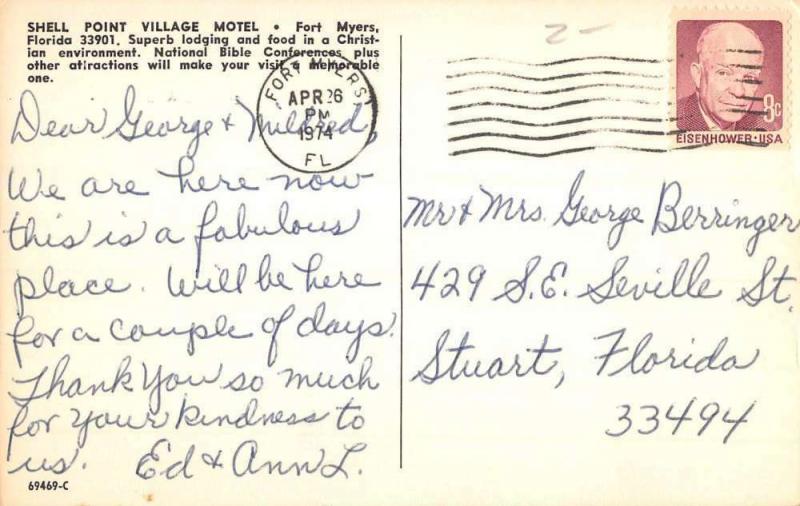 SHELL POINT VILLAGE MOTEL • Fort Myers,
Florida 33901. Superb lodging and food in a Christ-
ian environment. National Bible Conferences plus
other attractions will make your visit a memorable
one.
FORT MYERS
APR 26
PM
1974
FL
8c
EISENHOWER·USA
Dear George & Mildred,
We are here now
this is a fabulous
place. Will be here
for a couple of days.
Thank You so much
for your kindness to
us. Ed & Ann L.
Mr & Mrs. George Berringer
429 S.E. Seville St.
Stuart, Florida
33494
69469-C